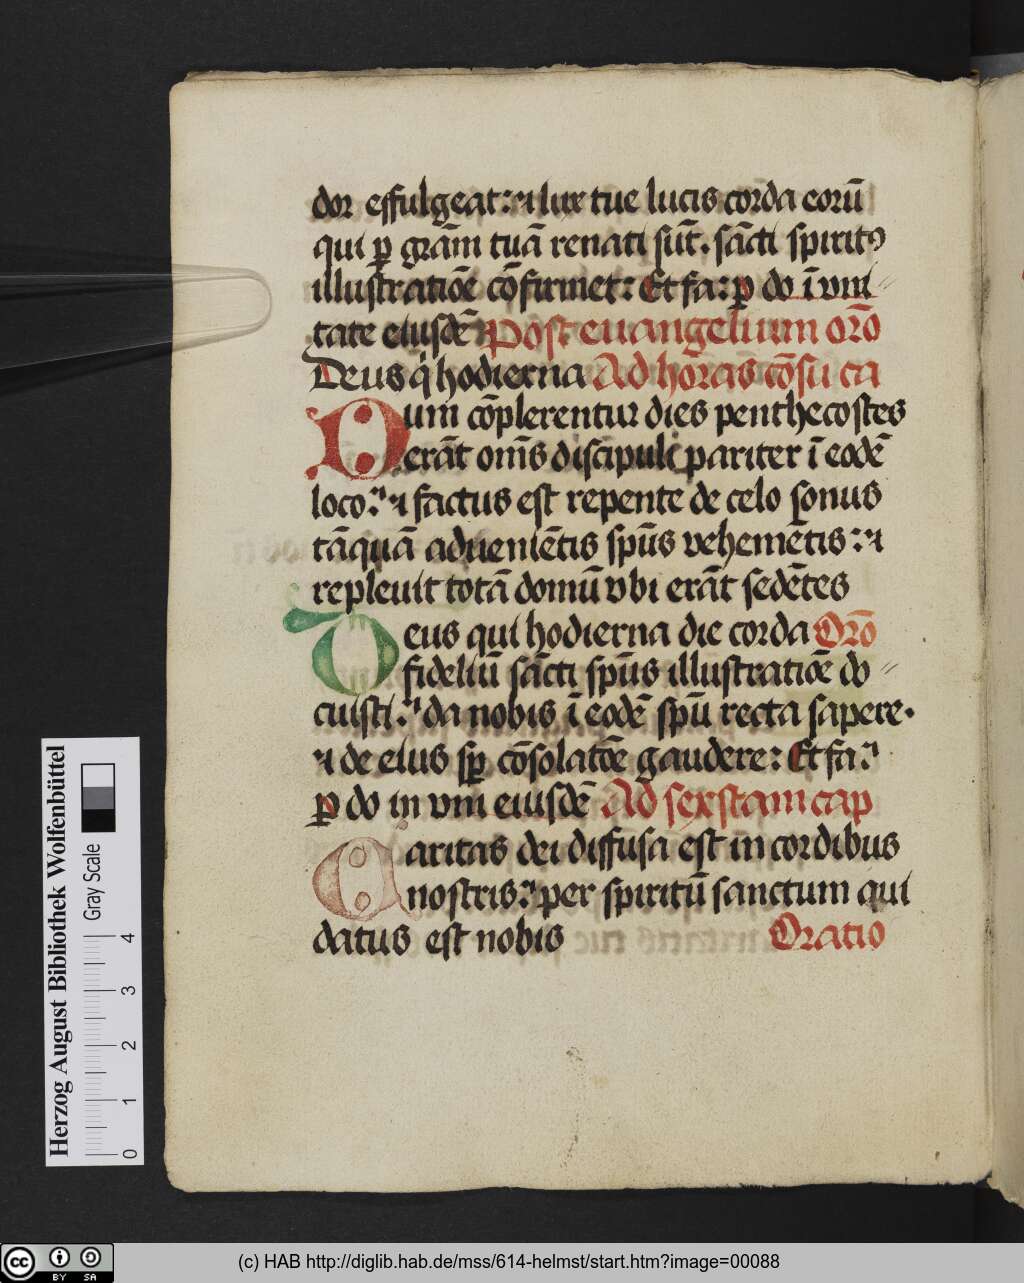 dor effulgeat: ⁊ lux tue lucis corda eorū
qui ꝑ grām tuā renati sūt. sācti spiritꝰ
illustratiōe cōfirmet: Et fa: ꝑ do ī vni
tate eiusdē Post euangelium orō
Deus q hodierna Ad horas cōsu ca
Dum cōplerentur dies penthecostes
erāt om̄s discipuli pariter ī eodē
loco: ⁊ factus est repente de celo sonus
tāquā adueniētis spūs vehemētis: ⁊
repleuit totā domū vbi erāt sedētes
Deus qui hodierna die corda Orō
fideliū sācti spūs illustratiōe do
cuisti: da nobis ī eodē spū recta sapere.
⁊ de eius sꝑ cōsolatōe gaudere: Et fa:
ꝑ do in vni eiusdē Ad sexstam cap
Caritas dei diffusa est in cordibus
nostris: per spiritū sanctum qui
datus est nobis Oratio
Herzog August Bibliothek Wolfenbüttel
Gray Scale
0 1 2 3 4
cc BY SA
(c) HAB http://diglib.hab.de/mss/614-helmst/start.htm?image=00088